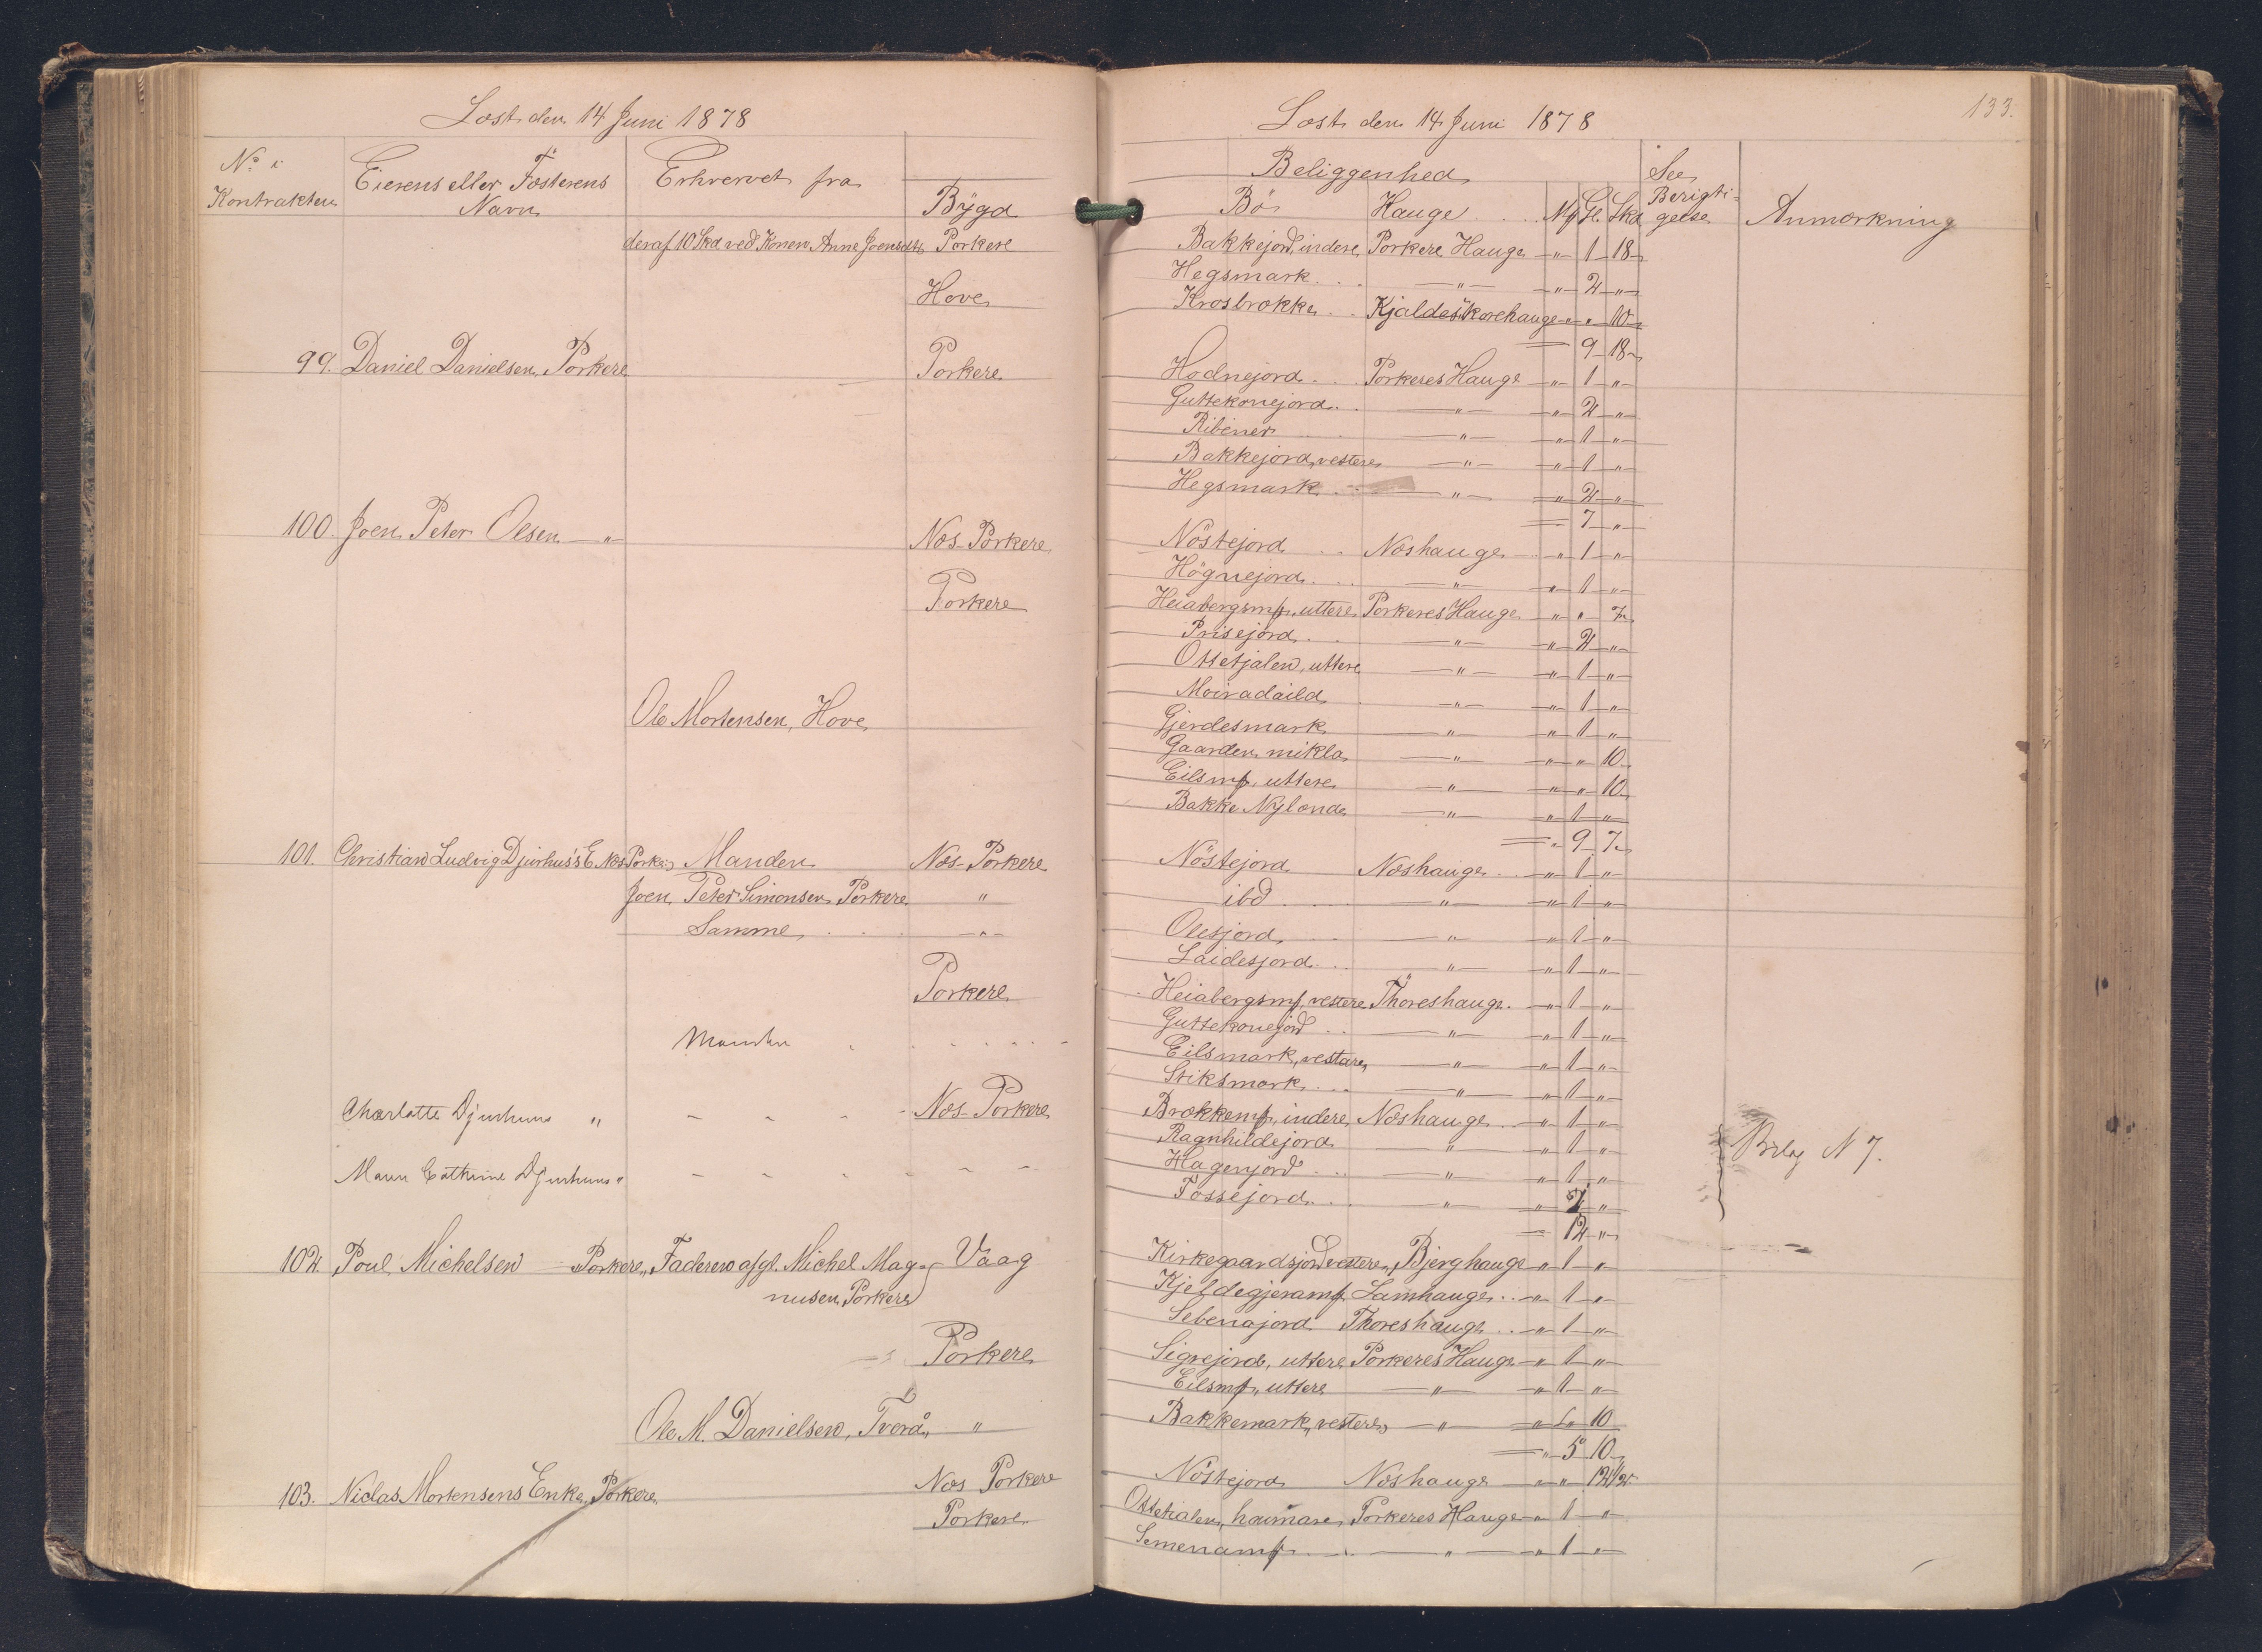 Læst den 14 Juni 1878
No i Kontrakten
Eierens eller Fæsterens Navn
Erhvervet fra
Bygd
deraf 10 Skd ved Konen Anne Joensdtr Porkere
Hove
99. Daniel Danielsen, Porkere Porkere
100. Joen Peter Olsen — " Næs-Porkere
Porkere
Ole Mortensen, Hove
101. Christian Ludvig Djurhus's E. Næs Porkere Manden Næs-Porkere
Joen Peter Simonsen Porkere "
Samme . . . — " —
Porkere
Manden
Charlotte Djurhuus " - - - - Næs-Porkere
Maren Cathrine Djurhuus " - - - - - -
102. Poul Michelsen Porkere, Faderen afgl. Michel Mag- Vaag
nusen, Porkere
Porkere
Ole M. Danielsen, Tverå, "
103. Niclas Mortensens Enke, Porkere Næs Porkere
Porkere
Læst den 14 Juni 1878
133.
Beliggenhed
See Berigti-gelse
Anmærkning
Bö Hauge Mk Gl. Skd
Bakkejord, indere Porkere Hauge " 1 18
Hegsmark . . . — " — " 2 "
Krosbrokke . . Kjaldeskorehauge " " 10
= 9 18
Hodnejord . . Porkeres Hauge " 1 "
Guttekonejord . . — " — " 2 "
Ribener — " — " 1 "
Bakkejord, vestere — " — " 1 "
Hegsmark . . — " — " 2 "
= 7 "
Nöstejord . . Næshauge " 1 "
Högnejord . . . — " — " 1 "
Heiabergsmk, uttere Porkeres Hauge " " 7
Prisejord . . — " — " 2 "
Ottetjalen, uttere — " — " 1 "
Moivadaild — " — " 1 "
Gjerdesmark — " — " 1 "
Gaarden mikla — " — " " 10
Eilsmk, uttere — " — " " 10
Bakke Nylænde — " — " 1 "
= " 9 7
Nöstejord Næshauge . . " 1 "
ibd . . . — " — " 1 "
Olesjord . . — " — " 1 "
Laidesjord . . — " — " 1 "
Heiabergsmk, vestere Thoreshauge . " 1 "
Guttekonejord . . — " — " 1 "
Eilsmark, vestare — " — " 1 "
Stiksmark . . . — " — " 1 "
Brokkemk, indere Næshauge . . " 1 "
Ragnhildejord — " — " 1 "
Bilag N 7.
Hagenjord . . . — " — " 1 "
Fossejord . . . — " — " "
= 12 "
Kirkegaardsjord vestere, Bjerghauge " 1 "
Kjeldegjeramk. Lamhauge . . " 1 "
Sebenajord Thoreshauge . . " 1 "
Sigrejord, uttere Porkeres Hauge " 1 "
Eilsmk, uttere — " — " 1 "
Bakkemark, vestere — " — " " 10
= " 5 10
Nöstejord Næshauge " " 12 1/2
Ottetialen, haimare Porkeres Hauge " 1 "
Semenamk . . . — " — " 1 "